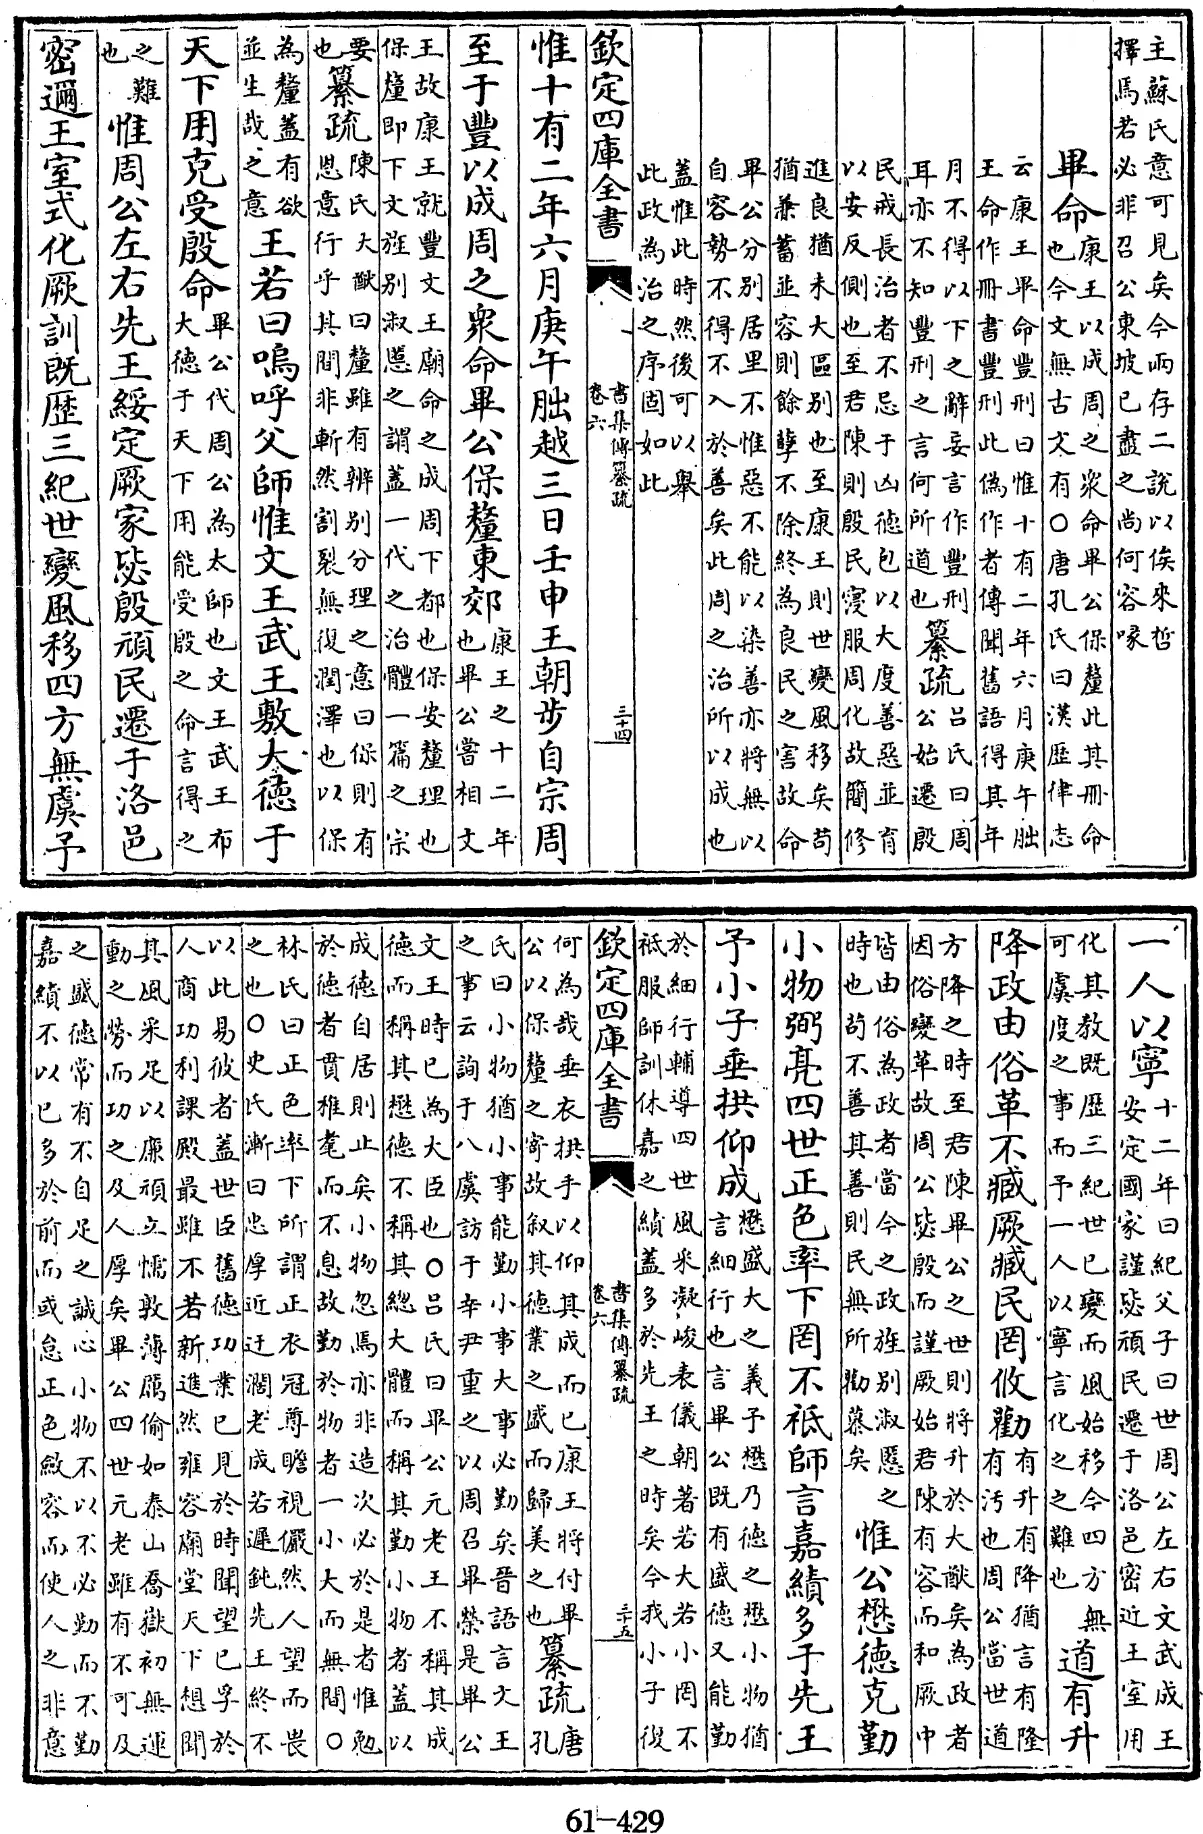 主蘇氏意可見矣今兩存二說以俟來哲
擇焉若必非召公東坡已盡之尚何容喙
畢命
康王以成周之衆命畢公保釐此其冊命
也今文無古文有○唐孔氏曰漢歷律志
云康王畢命豐刑曰惟十有二年六月庚午朏
王命作冊書豐刑此偽作者傳聞舊語得其年
月不得以下之辭妄言作豐刑
耳亦不知豐刑之言何所道也
纂疏
呂氏曰周
公始遷殷
民戒長治者不忌于凶德包以大度善惡並育
以安反側也至君陳則殷民寖服周化故簡修
進良猶未大區别也至康王則世變風移矣苟
猶兼蓄並容則餘孽不除終為良民之害故命
畢公分别居里不惟惡不能以染善亦將無以
自容勢不得不入於善矣此周之治所以成也
蓋惟此時然後可以舉
此政為治之序固如此
欽定四庫全書
書集傳纂疏
卷六
三十四
惟十有二年六月庚午朏越三日壬申王朝步自宗周
至于豐以成周之衆命畢公保釐東郊
康王之十二年
也畢公嘗相文
王故康王就豐文王廟命之成周下都也保安釐理也
保釐即下文旌别淑慝之謂蓋一代之治體一篇之宗
要
也
纂疏
陳氏大猷曰釐雖有辨别分理之意曰保則有
恩意行乎其間非斬然割裂無復潤澤也以保
為釐蓋有欲
並生哉之意
王若曰嗚呼父師惟文王武王敷大德于
天下用克受殷命
畢公代周公為太師也文王武王布
大德于天下用能受殷之命言得之
之難
也
惟周公左右先王綏定厥家毖殷頑民遷于洛邑
密邇王室式化厥訓既歷三紀世變風移四方無虞予
一人以寧
十二年曰紀父子曰世周公左右文武成王
安定國家謹毖頑民遷于洛邑密近王室用
化其教既歷三紀世已變而風始移今四方無
可虞度之事而予一人以寧言化之之難也
道有升
降政由俗革不臧厥臧民罔攸勸
有升有降猶言有隆
有汚也周公當世道
方降之時至君陳畢公之世則將升於大猷矣為政者
因俗變革故周公毖殷而謹厥始君陳有容而和厥中
皆由俗為政者當今之政旌别淑慝之
時也苟不善其善則民無所勸慕矣
惟公懋德克勤
小物弼亮四世正色率下罔不祗師言嘉績多于先王
予小子垂拱仰成
懋盛大之義予懋乃德之懋小物猶
言細行也言畢公既有盛德又能勤
於細行輔導四世風采凝峻表儀朝著若大若小罔不
祗服師訓休嘉之績蓋多於先王之時矣今我小子復
何為哉垂衣拱手以仰其成而已康王將付畢
公以保釐之寄故叙其德業之盛而歸美之也
纂疏
唐
孔
氏曰小物猶小事能勤小事大事必勤矣晉語言文王
之事云詢于八虞訪于辛尹重之以周召畢榮是畢公
文王時已為大臣也○呂氏曰畢公元老王不稱其成
德而稱其懋德不稱其總大體而稱其勤小物者蓋以
成德自居則止矣小物忽焉亦非造次必於是者惟勉
於德者貫稚耄而不息故勤於物者一小大而無間○
林氏曰正色率下所謂正衣冠尊瞻視儼然人望而畏
之也○史氏漸曰忠厚近迂濶老成若遲鈍先王終不
以此易彼者蓋世臣舊德功業已見於時聞望已孚於
人商功利課殿最雖不若新進然雍容廟堂天下想聞
其風采足以廉頑立懦敦薄厲偷如泰山喬嶽初無運
動之勞而功之及人厚矣畢公四世元老雖有不可及
之盛德常有不自足之誠心小物不以不必勤而不勤
嘉績不以已多於前而或怠正色斂容而使人之非意
欽定四庫全書
書集傳纂疏
卷六
三十五
61-429